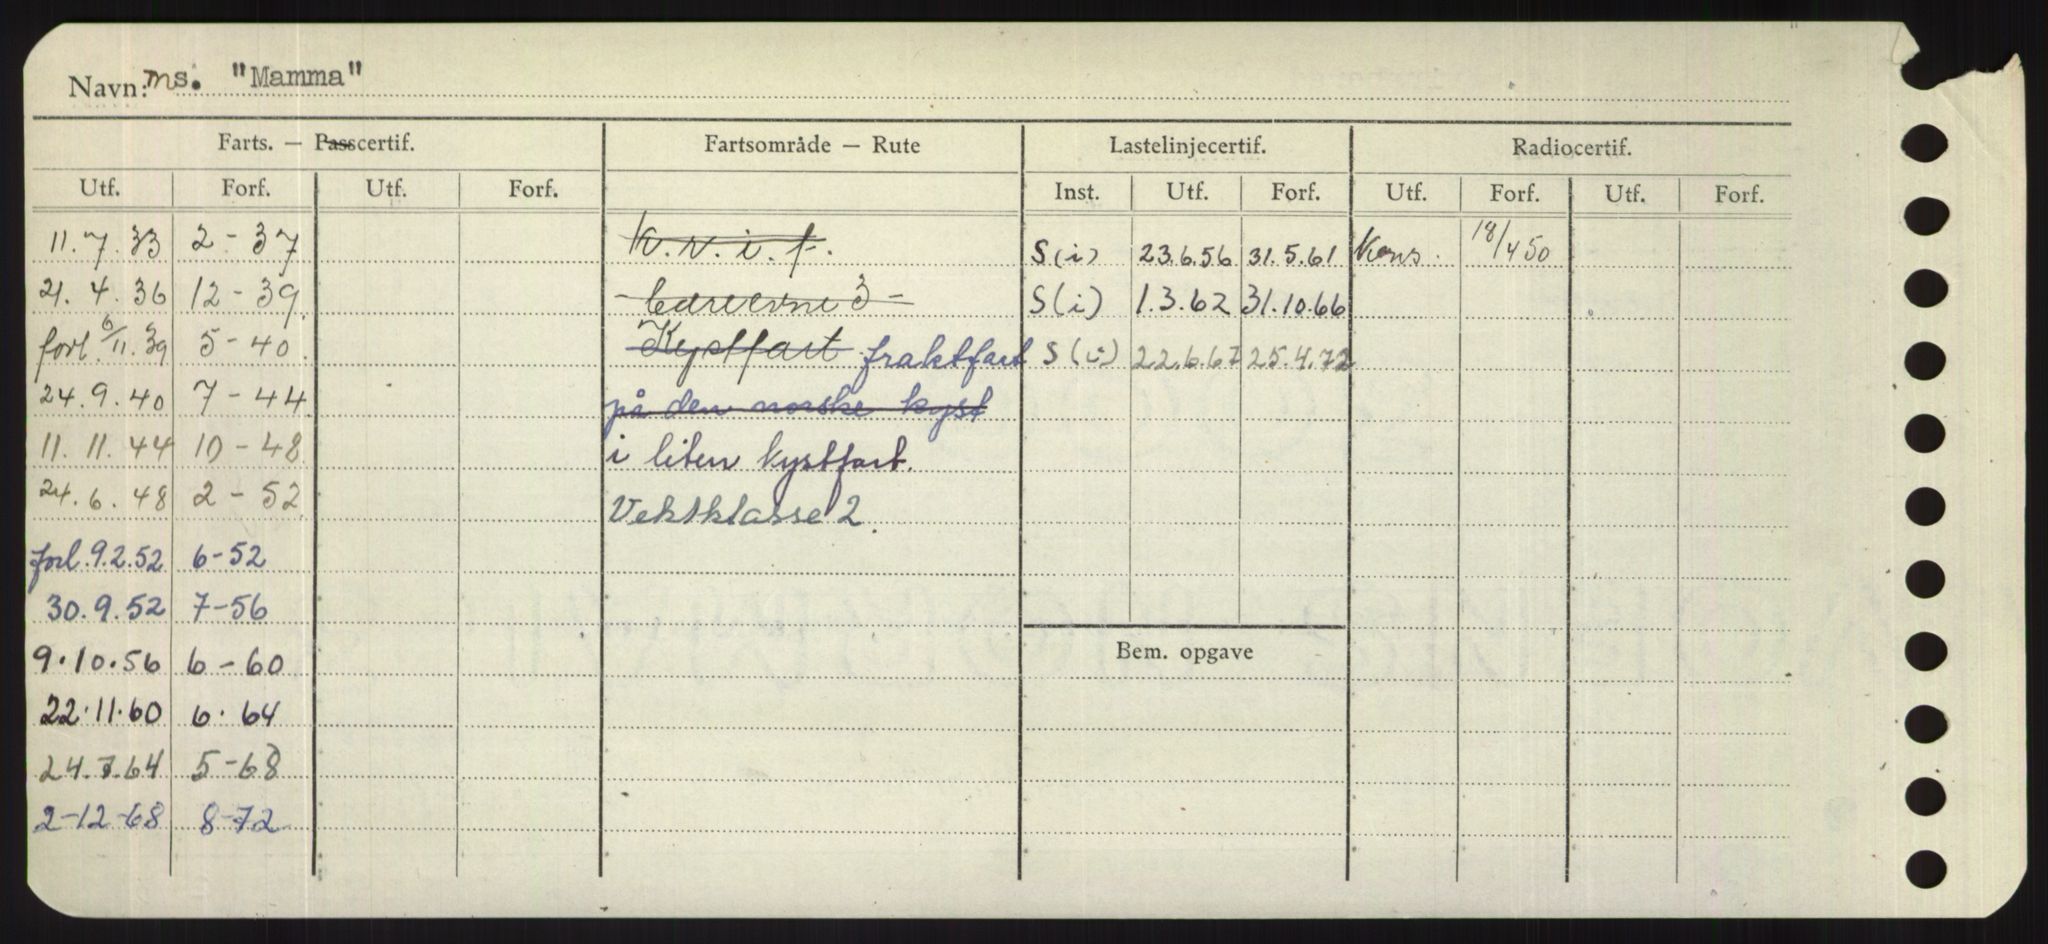 Navn: ms. "Mamma"
Farts. — Passcertif. Fartsområde — Rute Lastelinjecertif. Radiocertif.
Utf. Forf. Utf. Forf. Inst. Utf. Forf. Utf. Forf. Utf. Forf.
11.7.33 2-37 K.v.i.f. S(i) 23.6.56 31.5.61 Kons. 18/4 50
21.4.36 12-39 -bæreevne 3- S(i) 1.3.62 31.10.66
forl. 6/11.39 5-40 Kystfart fraktfart S(i) 22.6.67 25.4.72
24.9.40 7-44 på den norske kyst
11.11.44 10-48 i liten kystfart.
24.6.48 2-52 Vektklasse 2.
forl. 9.2.52 6-52
30.9.52 7-56
9.10.56 6-60
Bem. opgave
22.11.60 6.64
24.7.64 5-68
2-12-68 8-72